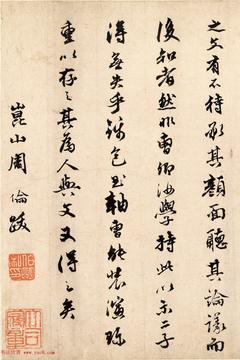 之文有不待承其顏面聽其論議而
後知者然非曹卿好學持此以示二子
得無失乎錦包玉軸曹能裝演珍
重以存之其為人與文又得之矣
崑山周倫跋